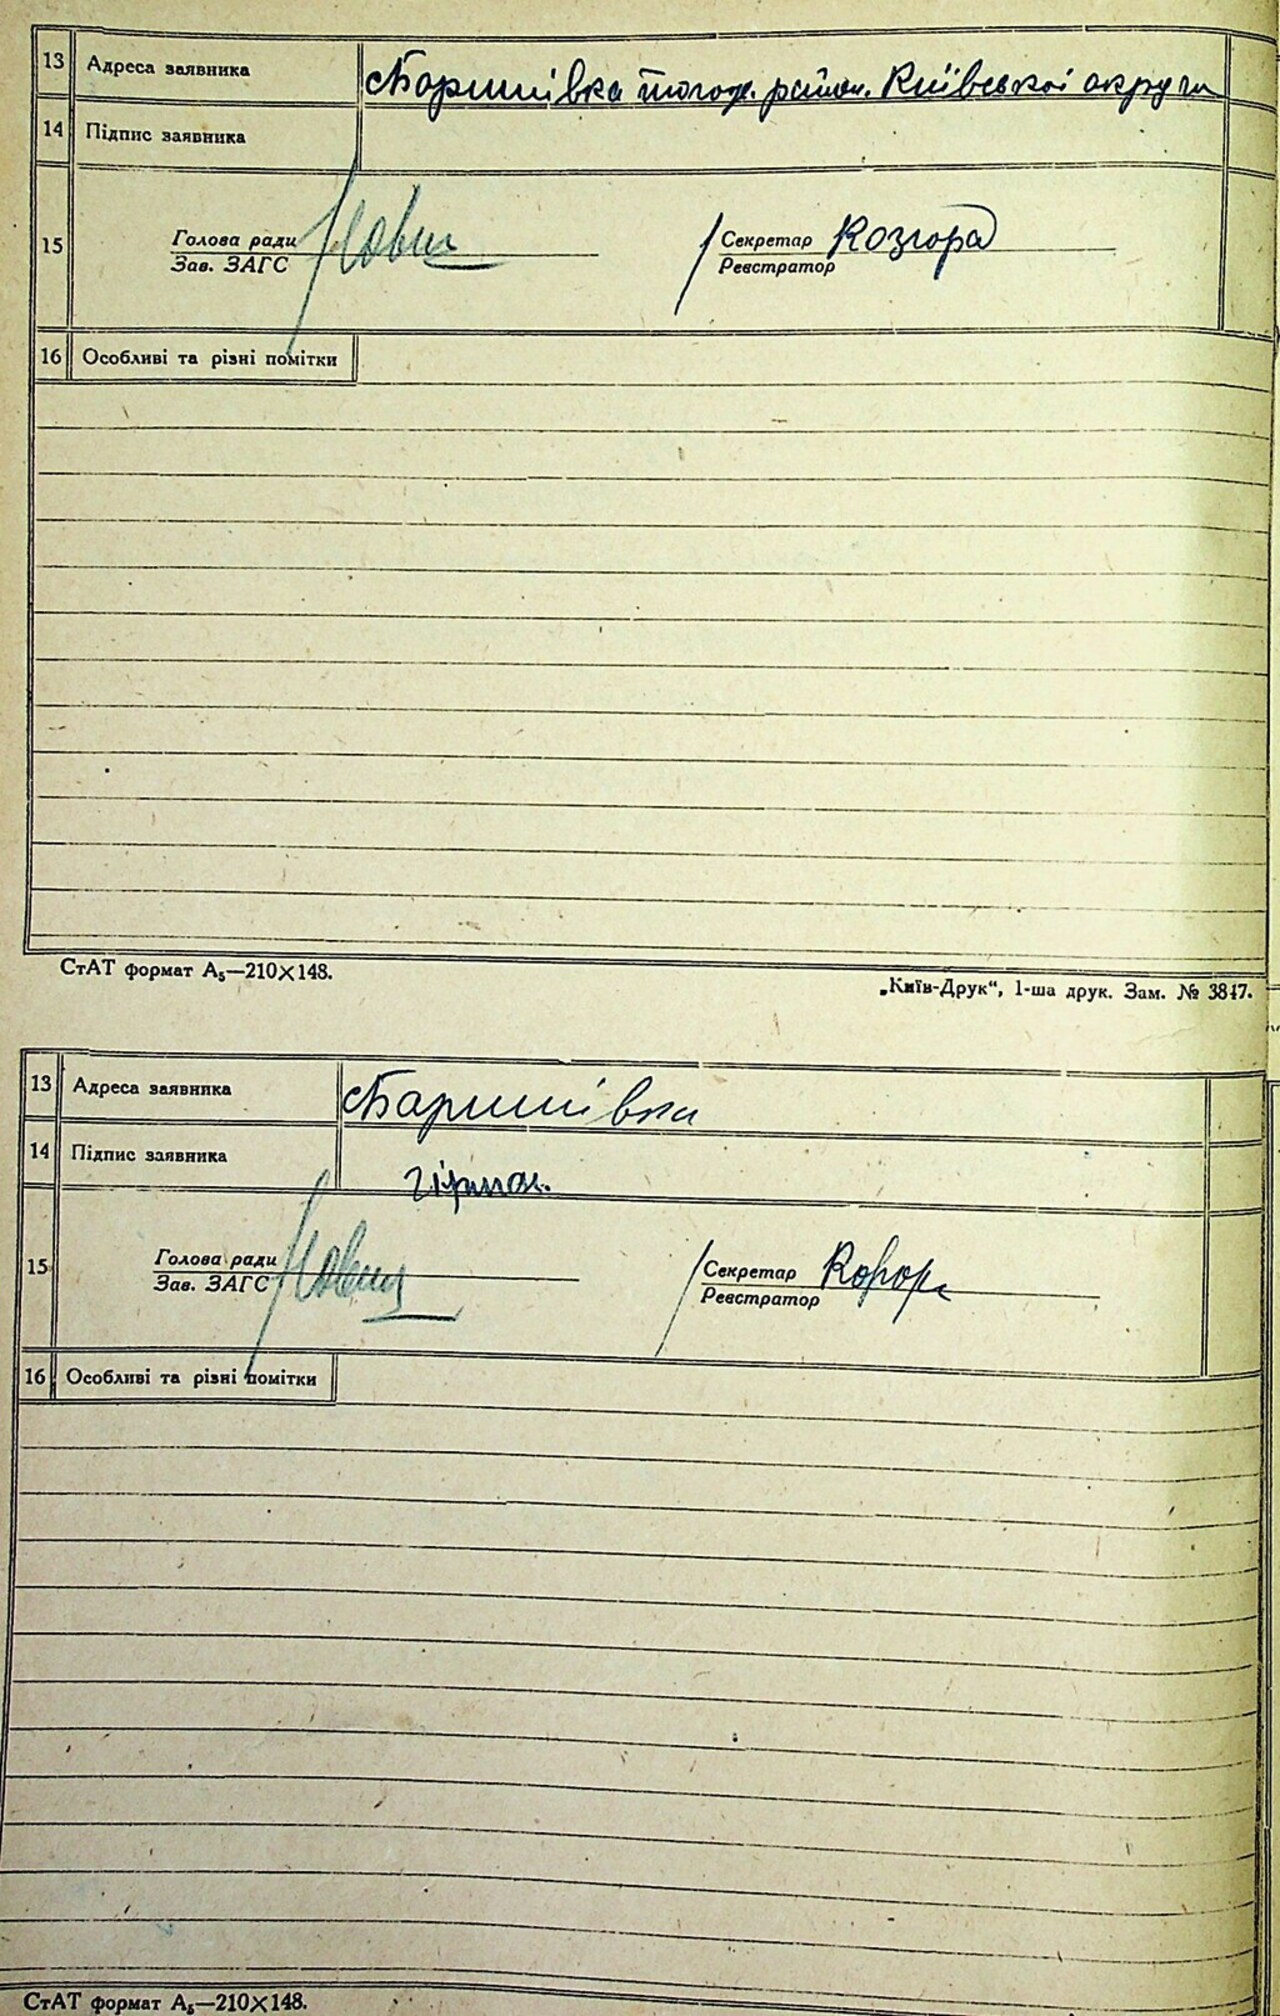 13 Адреса заявника Баришівка тогож. район. Київської округи
14 Підпис заявника
15 Голова ради Секретар
Зав. ЗАГС Реєстратор
16 Особливі та різні помітки
СтАТ формат А₅—210×148.
„Київ-Друк“, 1-ша друк. Зам. № 3847.
13 Адреса заявника Баришівка
14 Підпис заявника
15 Голова ради Секретар
Зав. ЗАГС Реєстратор
16 Особливі та різні помітки
СтАТ формат А₅—210×148.